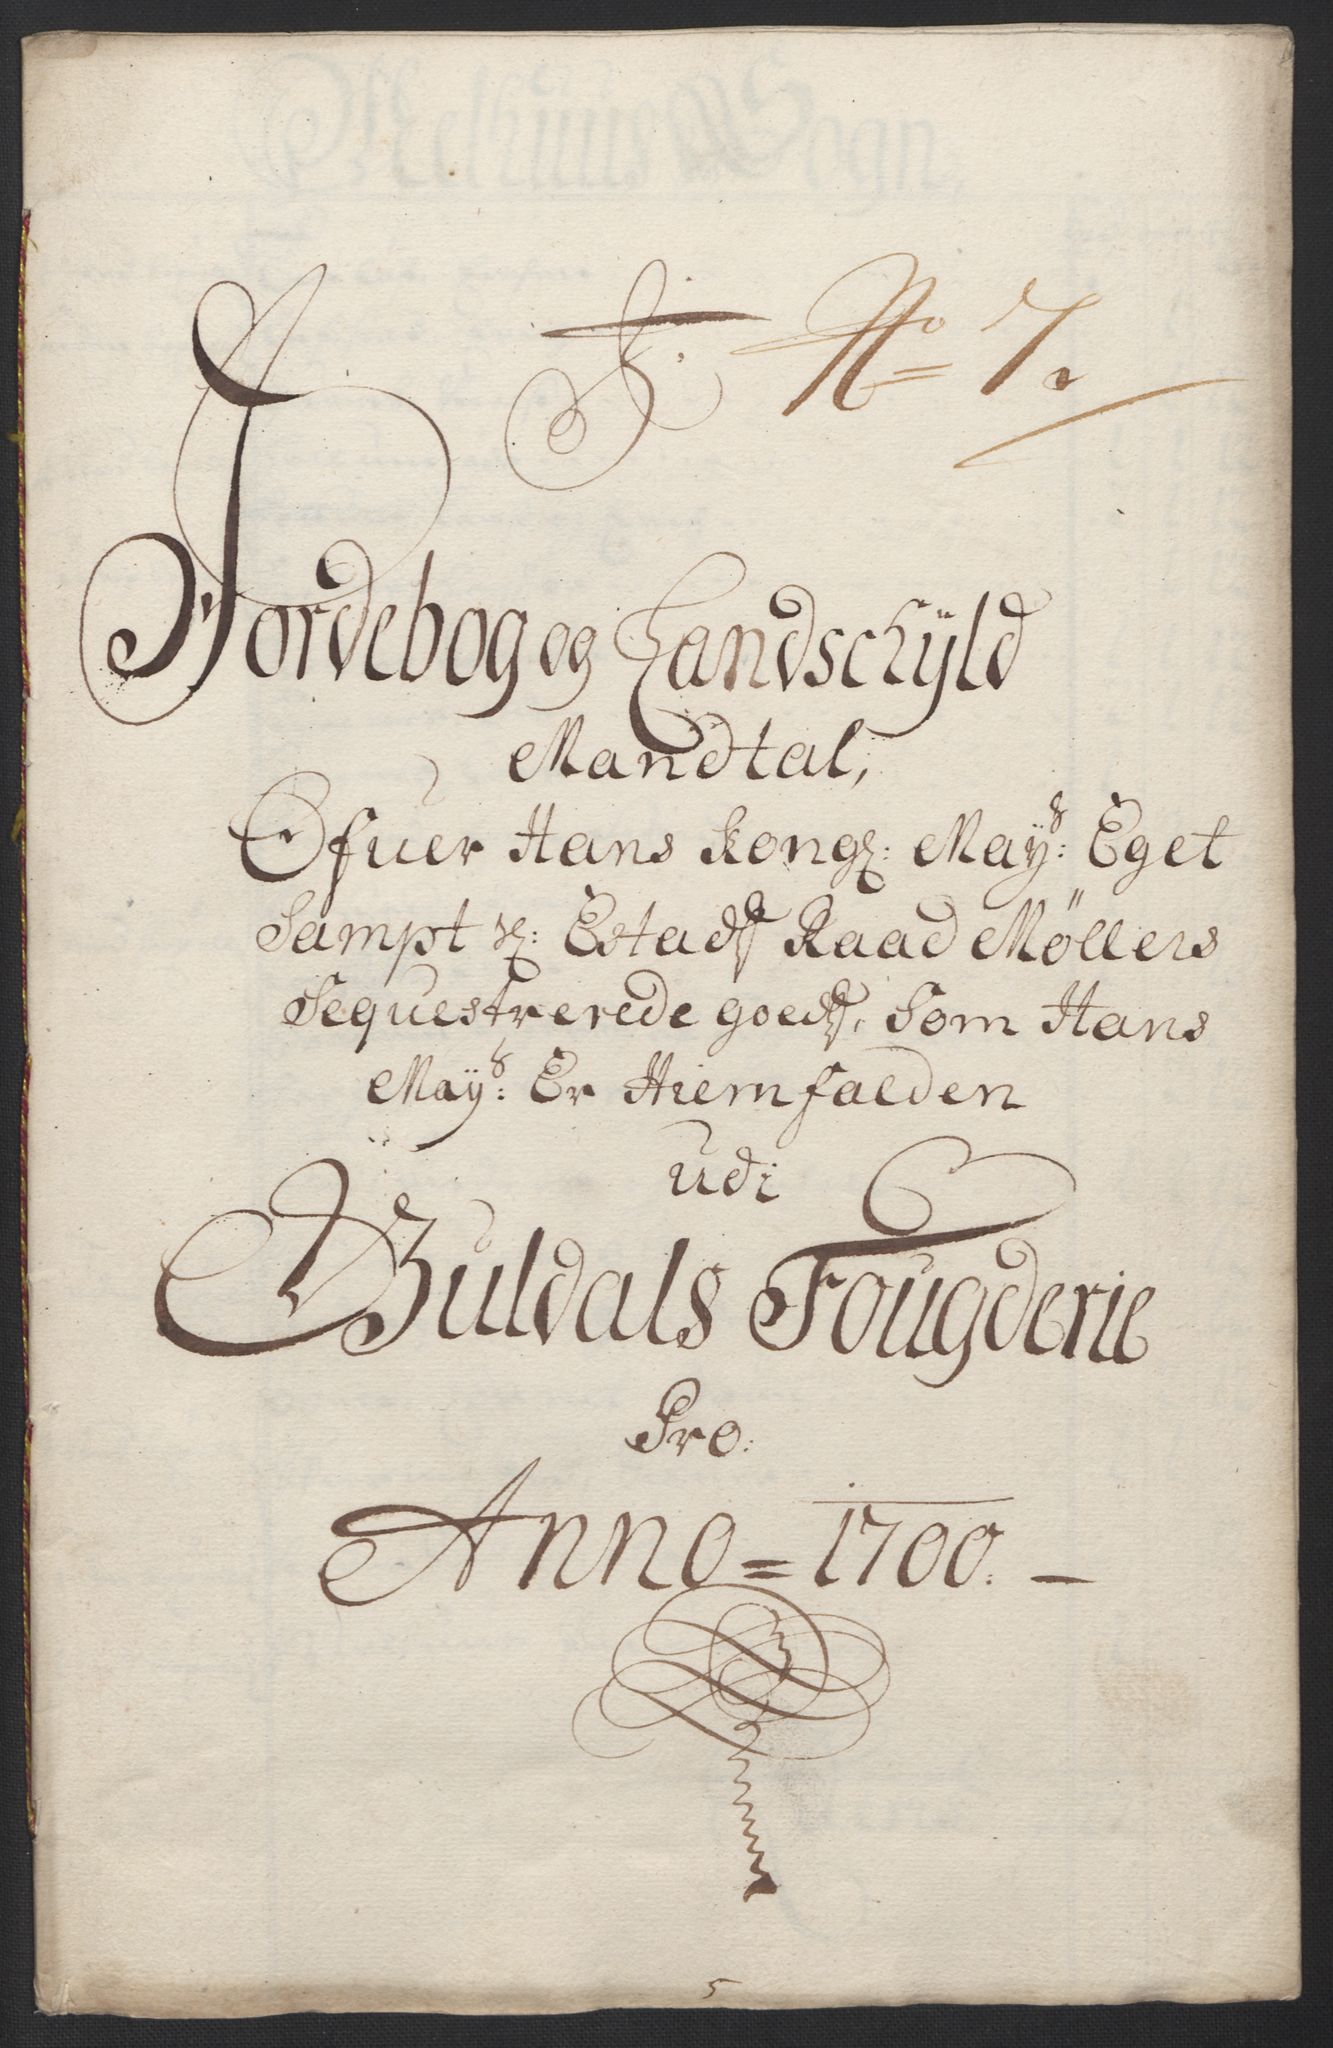 No 7.
Jordebog og Landschÿld
Mandtal,
Ofuer Hans Kongl: Mayˢ: Eget
Sampt Estads Raad Möllers
Sequestrerede goeds, Som Hans
Mayˢ: Er Hiemfalden
udi
Guldals Fougderie
Pro.
Anno = 1700. –
5